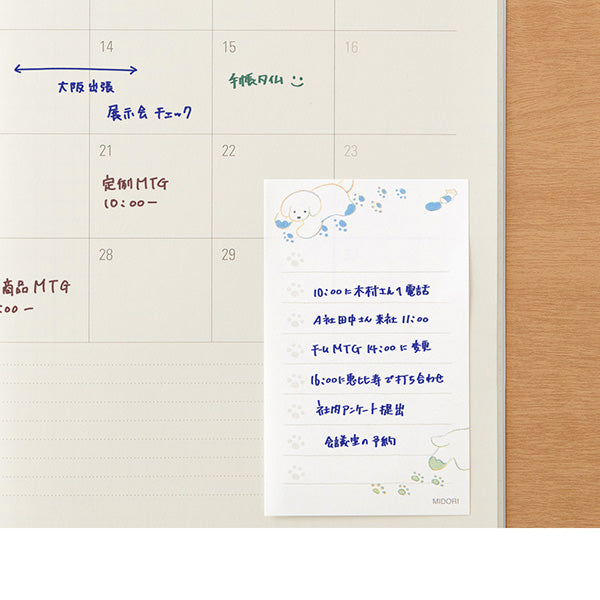 14
15
16
大阪出張
手帳タイム
展示会チェック
21
22
23
定例MTG
10:00ー
28
29
30
商品MTG
:00ー
10:00に木村さんへ電話
A社田中さん来社 11:00
チームMTG 14:00に変更
16:00に恵比寿で打ち合わせ
社内アンケート提出
会議室の予約
MIDORI